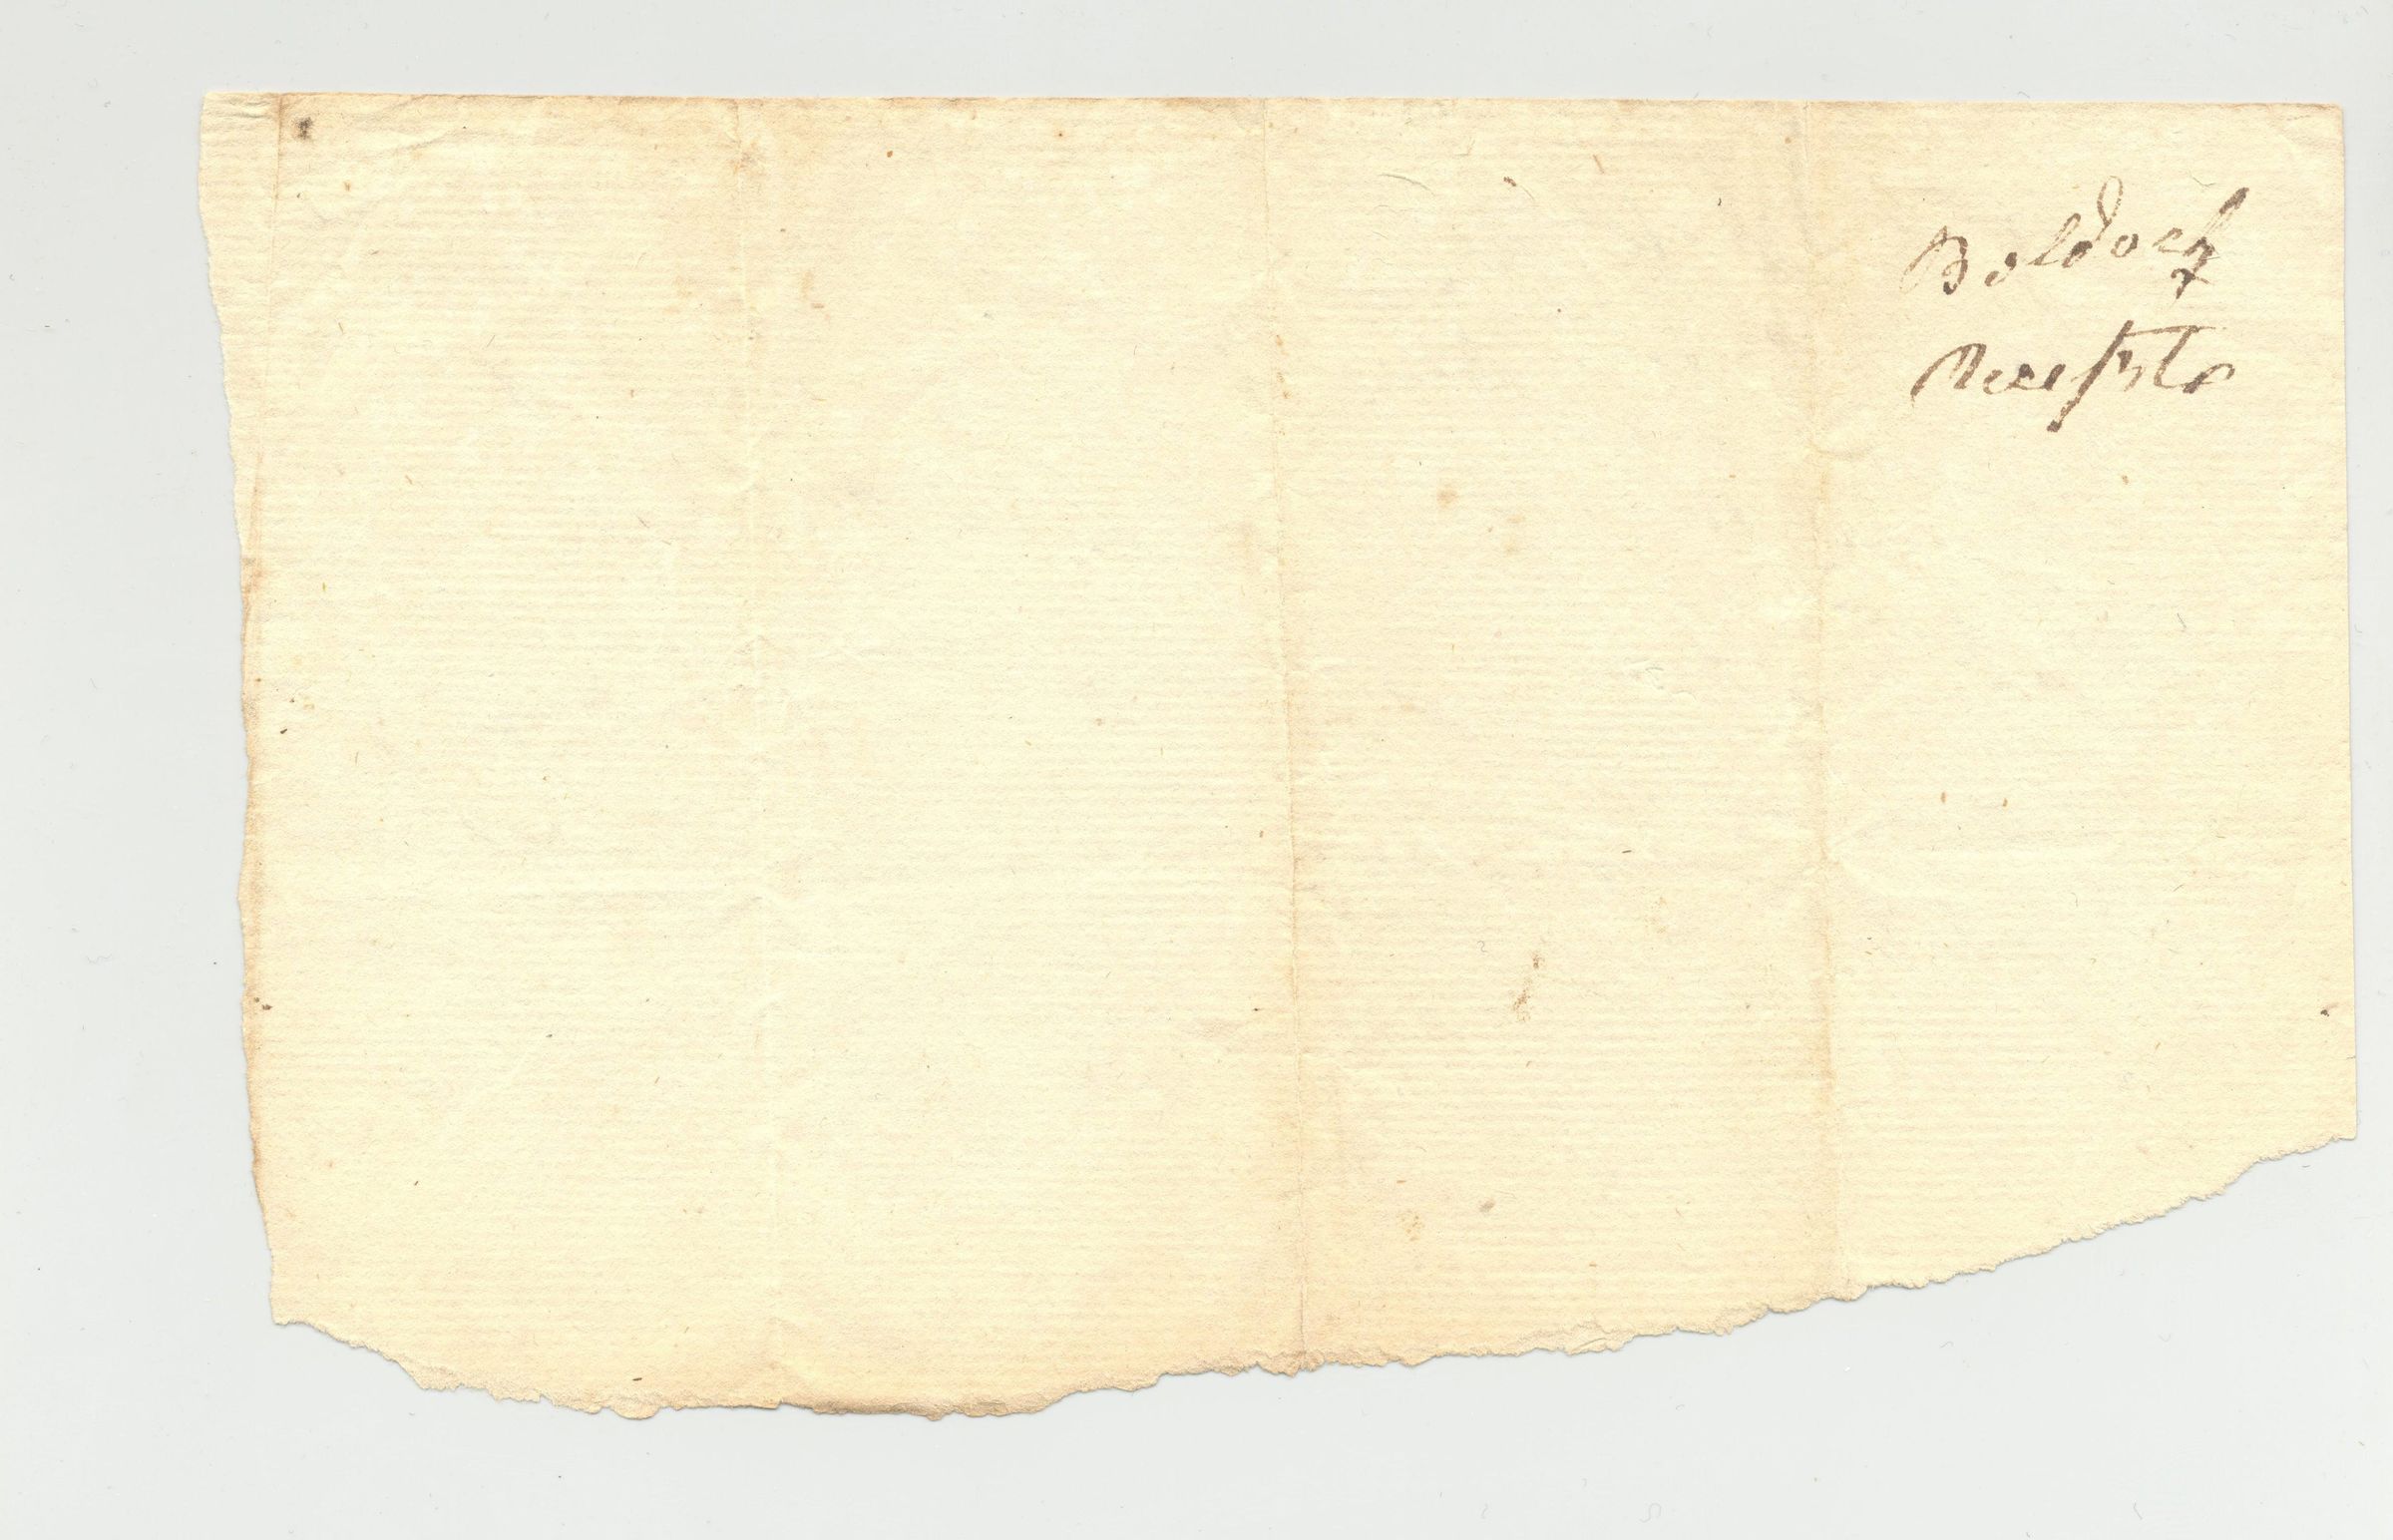 Baldock
Receipts